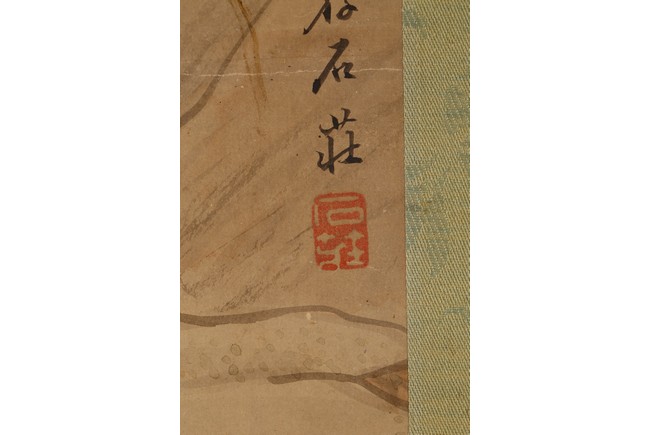 石莊
石莊